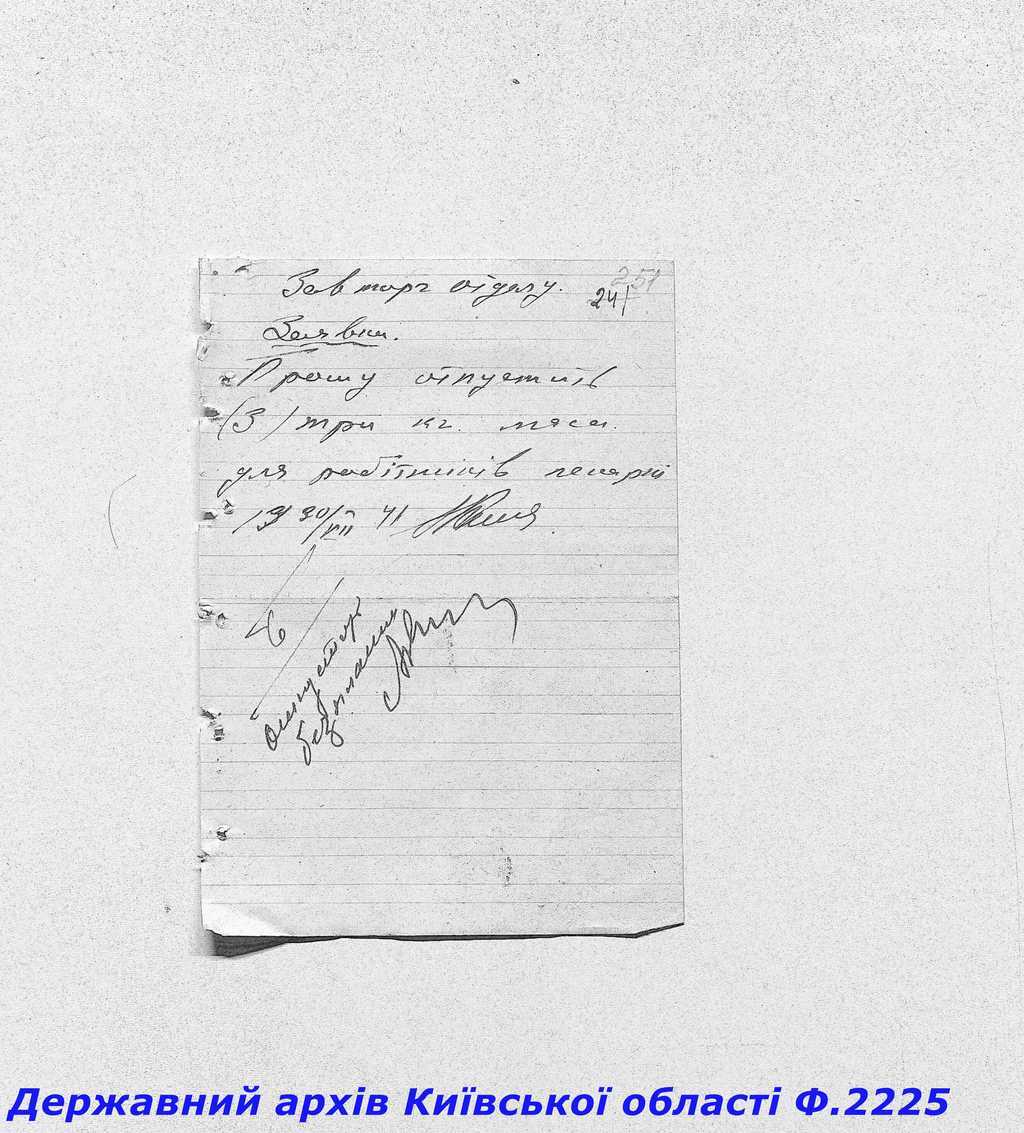 Зав торг отделу.
257
241
Заявка.
Прошу отпустить
(3) три кг. мяса
для робітників пекарні
19 30/XII 41
отпустить
безплатно
Державний архів Київської області Ф.2225